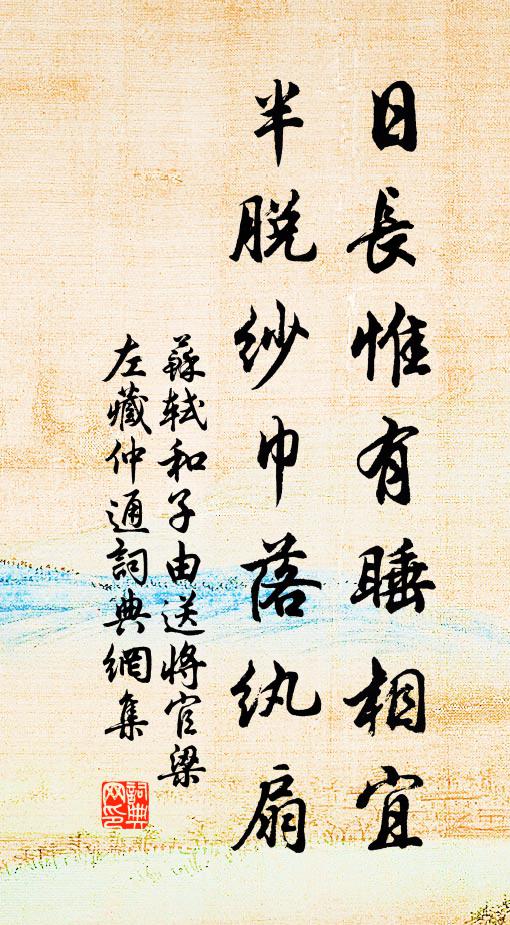 日長惟有睡相宜
半脱紗巾落紈扇
蘇軾和子由送將官梁
左藏仲通詞典網集
詞典
网印